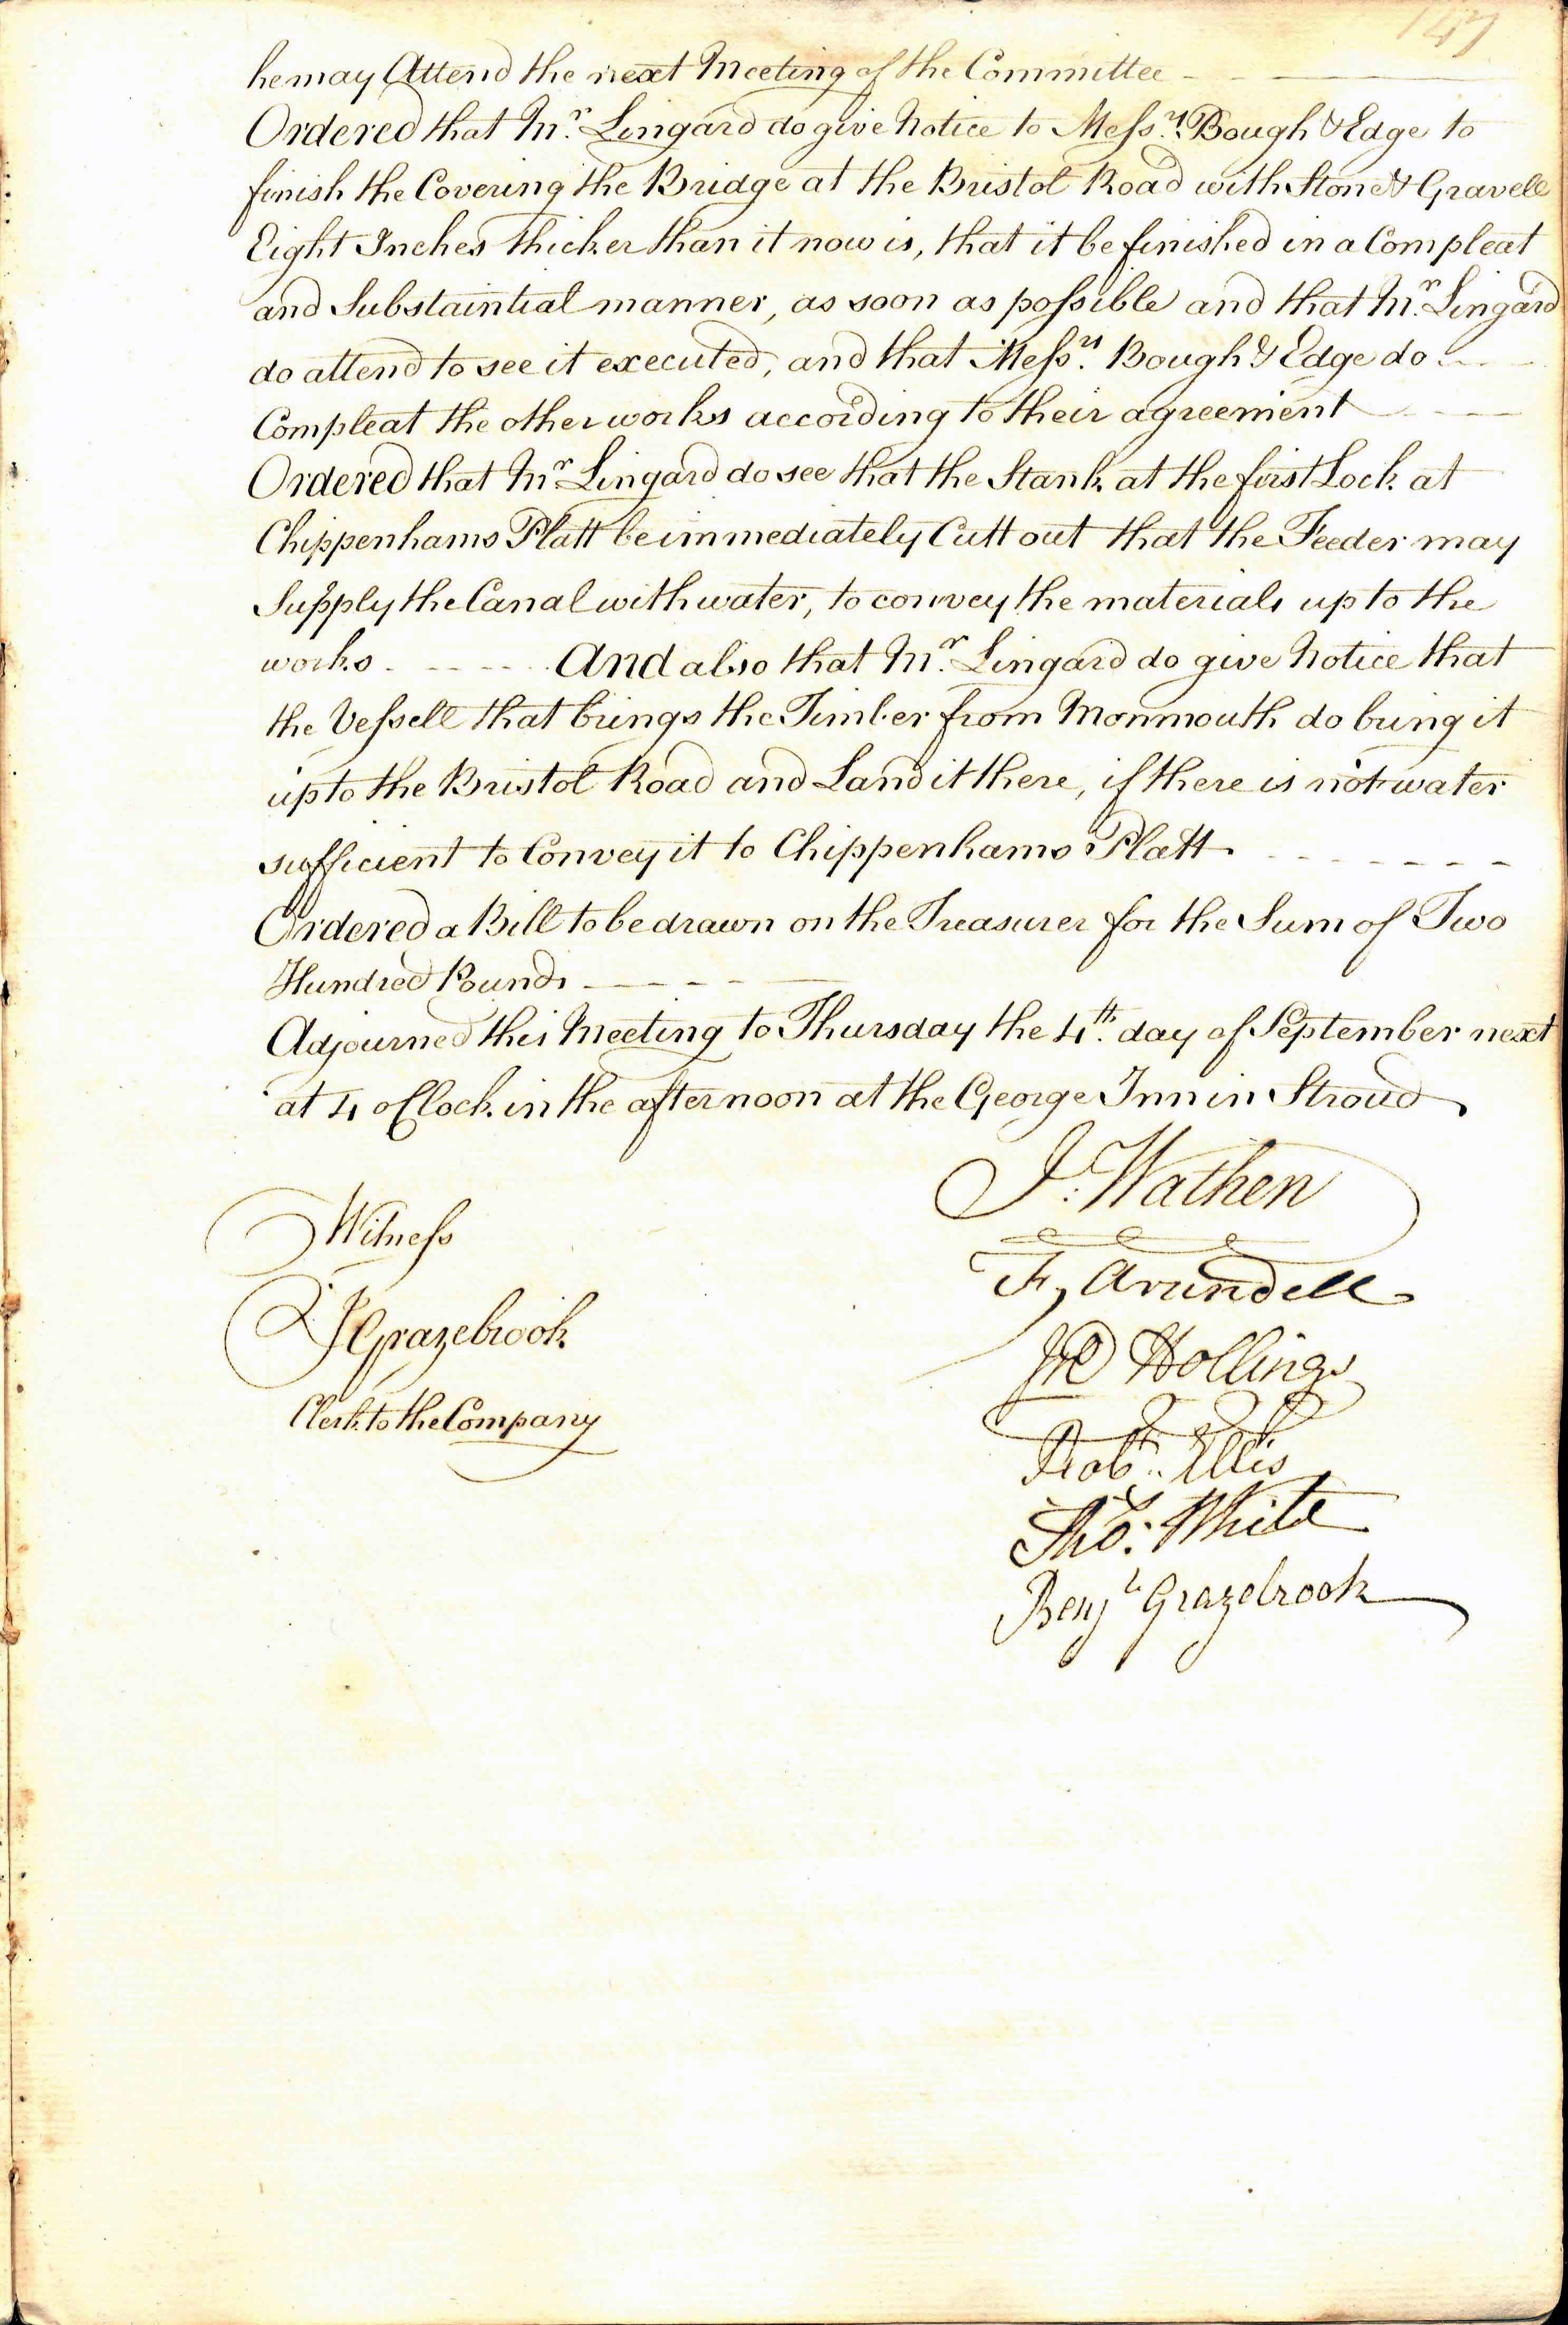 147
he may Attend the next Meeting of the Committee
Ordered that Mr. Lingard do give Notice to Messrs. Bough & Edge to
finish the Covering the Bridge at the Bristol Road with Stone & Gravell
Eight Inches thicker than it now is, that it be finished in a Compleat
and Substaintial manner, as soon as possible and that Mr. Lingard
do attend to see it executed, and that Messrs. Bough & Edge do
Compleat the other works according to their agreement
Ordered that Mr. Lingard do see that the Stank at the first Lock at
Chippenhams Platt be immediately Cutt out that the Feeder may
Supply the Canal with water, to convey the materials up to the
works. - - - - - And also that Mr. Lingard do give Notice that
the Vessell that brings the Timber from Monmouth do bring it
up to the Bristol Road and Land it there, if there is not water
sufficient to Convey it to Chippenhams Platt.
Ordered a Bill to be drawn on the Treasurer for the Sum of Two
Hundred Pounds
Adjourned this Meeting to Thursday the 4th. day of September next
at 4 o Clock in the afternoon at the George Inn in Stroud
J: Wathen
Witness
F, Arundell
J Grazebrook
Hollings
Clerk to the Company
Robt. Ellis
Tho: White
Benj Grazebrook